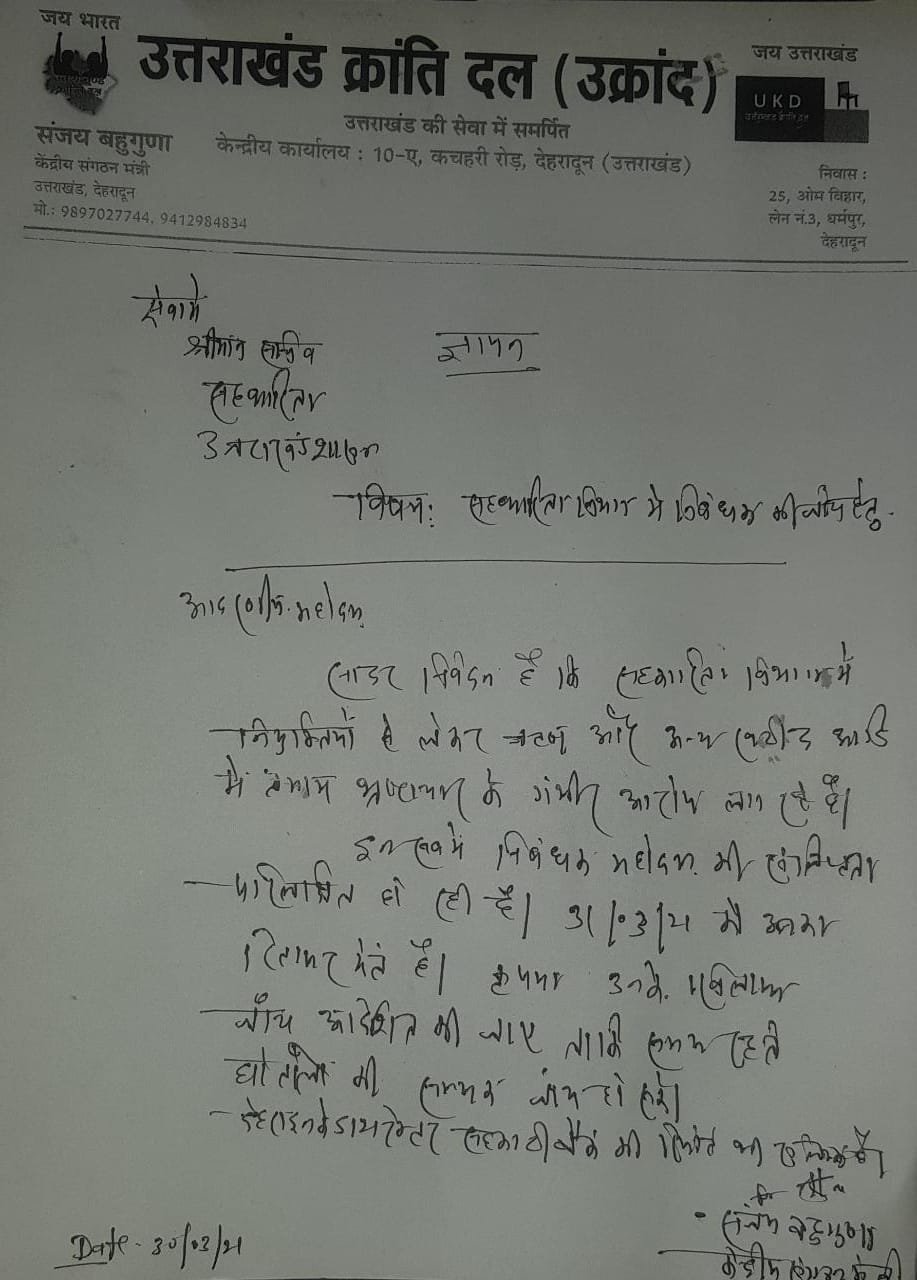 जय भारत
उत्तराखंड क्रांति दल (उक्रांद)
जय उत्तराखंड
UKD
उत्तराखण्ड क्रान्ति दल
उत्तराखंड की सेवा में समर्पित
संजय बहुगुणा
केंद्रीय संगठन मंत्री
उत्तराखंड, देहरादून
मो.: 9897027744, 9412984834
केन्द्रीय कार्यालय : 10-ए, कचहरी रोड़, देहरादून (उत्तराखंड)
निवास :
25, ओम विहार,
लेन नं.3, धर्मपुर,
देहरादून
सेवामे
श्रीमान सचिव
ज्ञापन
सहकारिता
उत्तराखंड शासन
विषय: सहकारिता विभाग मे निबंधक की जांच हेतु.
आदरणीय महोदय,
सादर निवेदन है कि सहकारिता विभाग में
नियुक्तियों से लेकर और अन्य खरीद आदि
में तमाम भ्रष्टाचार के गंभीर आरोप लग रहे है।
इन सबमे निबंधक महोदय की संलिप्तता
परिलक्षित हो रही है। 31/03/21 मे उनका
रिटायरमेंट है। कृपया उनके खिलाफ
जाँच आदेशित की जाए ताकि समय रहते
घोटालों की सम्यक जांच हो सके।
सहकारी बैंक की रिपोर्ट
संजय बहुगुणा
Date - 30/03/21